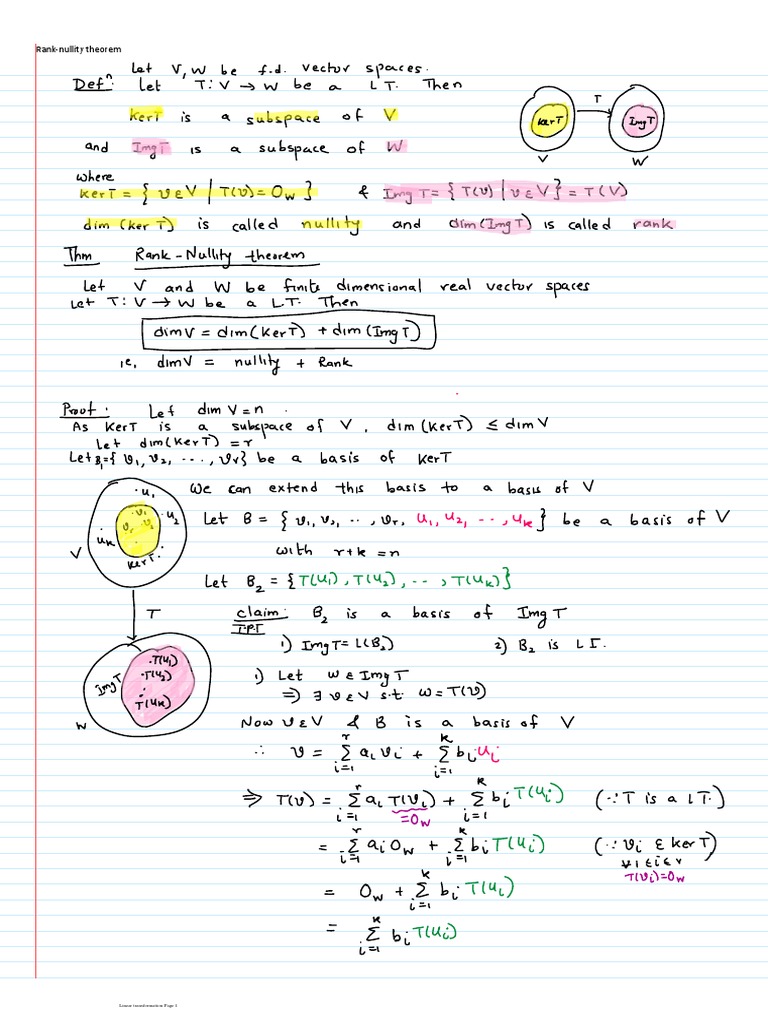 Rank-nullity theorem
Let V, W be f.d. vector spaces.
Defⁿ: Let T: V → W be a L T. Then
kerT is a subspace of V
and ImgT is a subspace of W
T
kerT
ImgT
V
W
where
kerT = { v ∈ V | T(v) = 0w } & ImgT = { T(v) | v ∈ V } = T(V)
dim (ker T) is called nullity and dim(ImgT) is called rank
Thm Rank-Nullity theorem
Let V and W be finite dimensional real vector spaces
Let T: V → W be a L.T. Then
dimV = dim(KerT) + dim(ImgT)
ie, dimV = nullity + Rank
Proof: Let dim V = n.
As KerT is a subspace of V, dim(KerT) ≤ dimV
Let dim(KerT) = r
Let B₁={ v₁, v₂, ..., vr} be a basis of KerT
We can extend this basis to a basis of V
Let B = { v₁, v₂, .., vr, u₁, u₂, .., uk } be a basis of V
with r+k = n
Let B₂ = { T(u₁), T(u₂), .., T(uk) }
u₁
v₁
vr v₂
u₂
uk
kerT
V
T
Claim: B₂ is a basis of ImgT
T.P.T
1) ImgT = L(B₂) 2) B₂ is L I.
ImgT
T(u₁)
T(u₂)
T(uk)
W
1) Let w ∈ ImgT
⇒ ∃ v ∈ V s.t. w = T(v)
Now v ∈ V & B is a basis of V
∴ v = r Σ i=1 aᵢ vᵢ + k Σ i=1 bᵢ uᵢ
⇒ T(v) = r Σ i=1 aᵢ T(vᵢ) + k Σ i=1 bᵢ T(uᵢ) (∵ T is a LT.)
=0w
= r Σ i=1 aᵢ 0w + k Σ i=1 bᵢ T(uᵢ) (∵ vᵢ ∈ kerT)
∀ 1 ≤ i ≤ r
T(vᵢ)=0w
= 0w + k Σ i=1 bᵢ T(uᵢ)
= k Σ i=1 bᵢ T(uᵢ)
Linear transformation Page 1